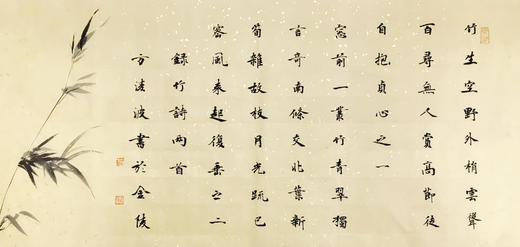 竹生空野外梢雲聳
百尋無人賞高節徒
自抱貞心之一
窓前一叢竹青翠獨
言奇南條交北葉新
筍雜故枝月光疏已
密風來起復垂之二
録竹詩兩首
方波波書於金陵